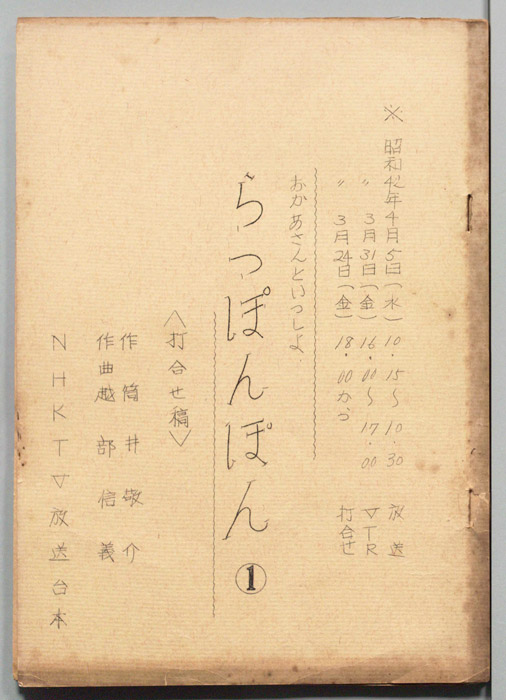 ※昭和42年4月5日(水) 10.15〜10.30 放送
〃 3月31日(金) 16.00〜17.00 VTR
〃 3月24日(金) 18.00から 打合せ
おかあさんといっしょ
らっぽんぽん①
〈打合せ稿〉
作 筒井敬介
作曲 越部信義
NHKTV放送台本